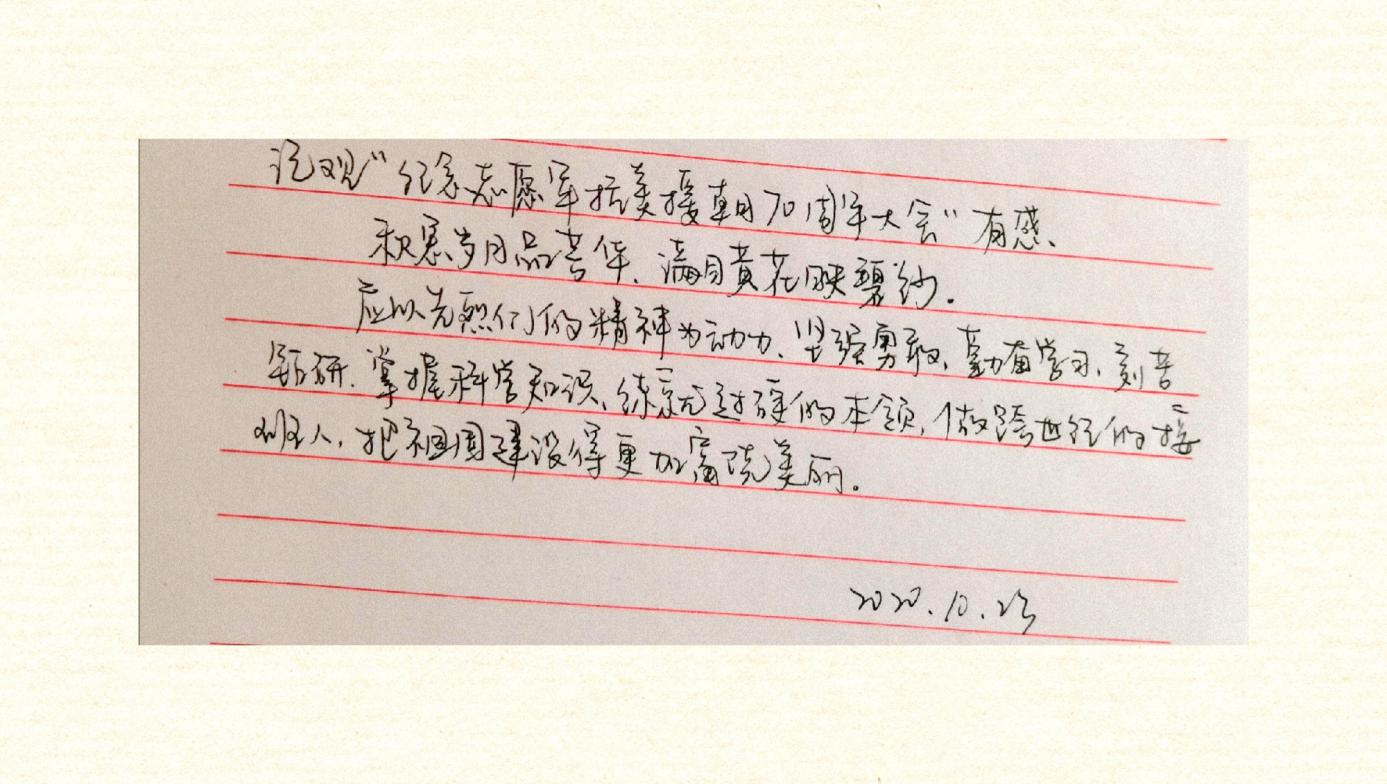 记观"纪念志愿军抗美援朝70周年大会"有感、
积累岁月品芳华、满目黄花映碧纱。
应以先烈们的精神为动力、坚强勇敢、勤奋学习、刻苦
钻研、掌握科学知识、练就过硬的本领,做跨世纪的接
班人,把祖国建设得更加富饶美丽。
2020.10.23